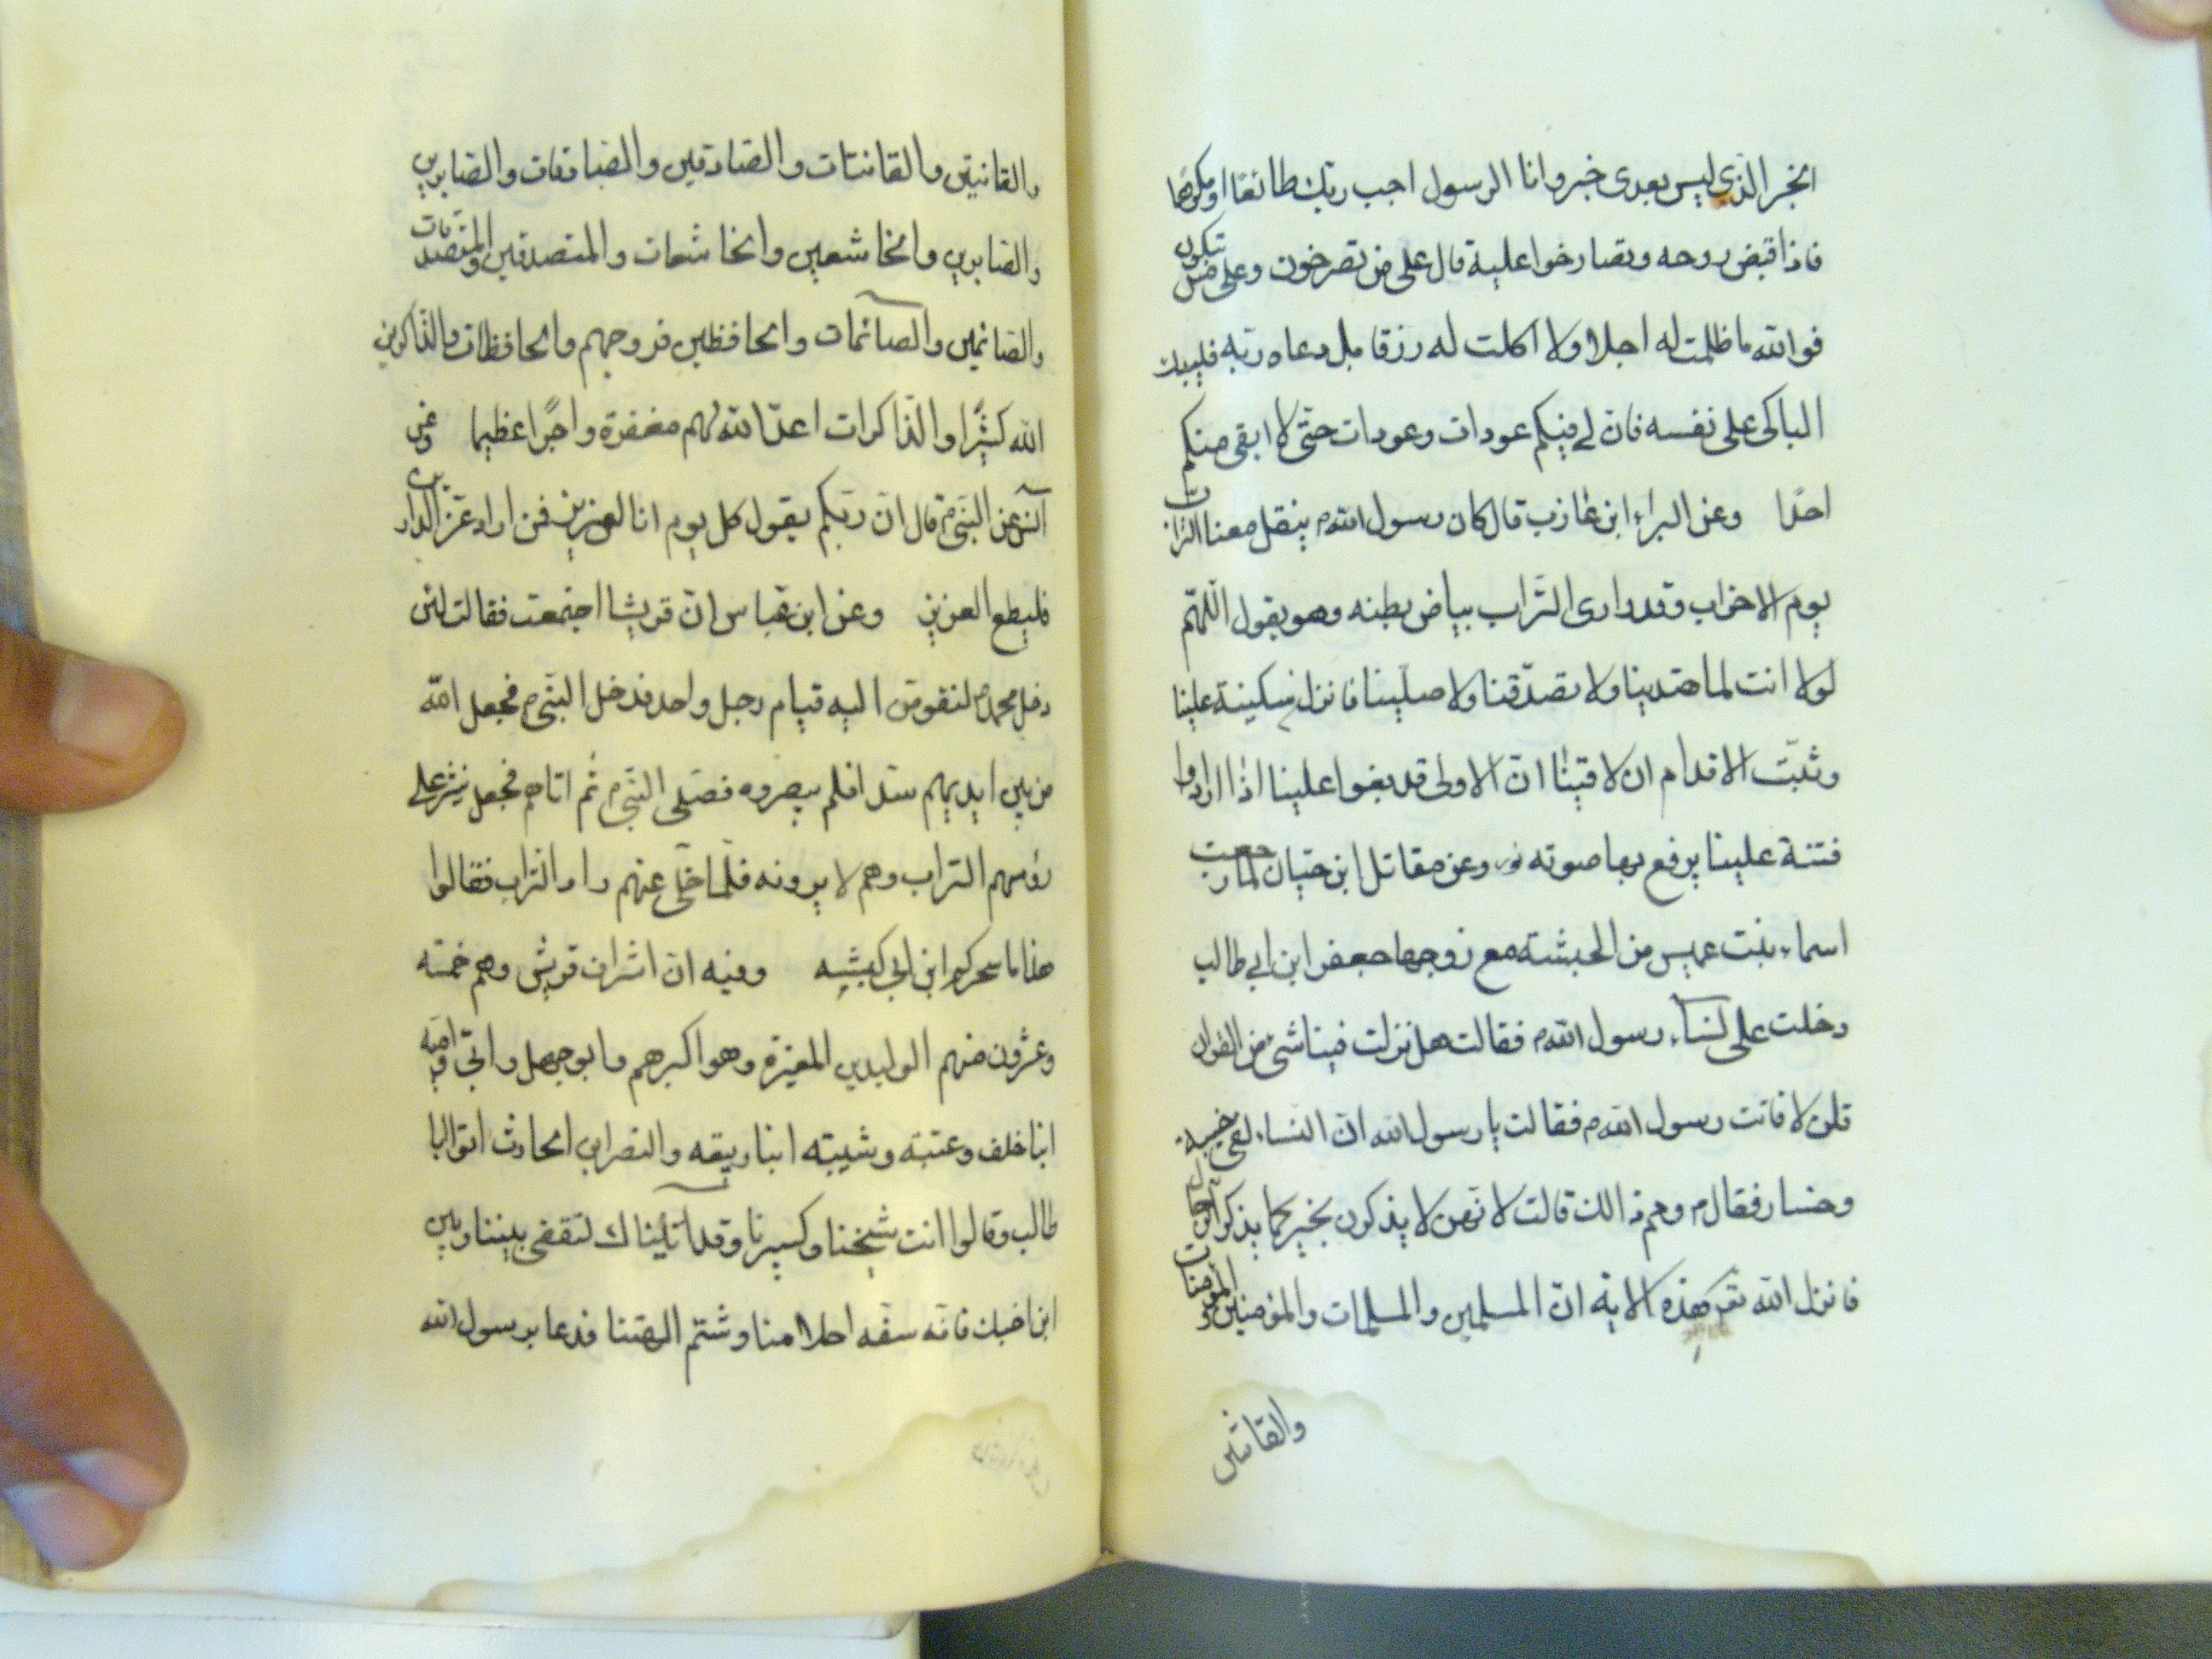 الخبر الذی لیس بعدی خبر وانا الرسول اجب ربك طائعًا او مکرهًا
فاذا قبض روحه وتصارخوا علیه قال علی من تصرخون وعلی من تبکون
فوالله ما ظلمت له اجلا ولا اکلت له رزقا بل دعاه ربه فلیبك
الباکی علی نفسه فان لی فیکم عودات وعودات حتّی لا ابقی منکم
احدًا وعن البراء ابن عازب قال کان رسول الله م ینقل معنا التراب
یوم الاحزاب وقد واری التّراب بیاض بطنه وهو یقول اللّهمّ
لولا انت لما هتدینا ولا تصدّقنا ولا صلّینا فانزل سکینة علینا
وثبّت الاقدام ان لاقینا انّ الاولی قد بغوا علینا اذا ارادوا
فتنة علینا یرفع بها صوته وعن مقاتل ابن حیّان لمّا رجعت
اسماء بنت عمیس من الحبشته مع زوجها جعفر ابن ابی طالب
دخلت علی نساء رسول الله م فقالت هل نزلت فینا شیء من القران
قلن لا فاتت رسول الله م فقالت یا رسول الله انّ النّساء لفی خیبة
وخسار فقال م ومم ذالك قالت لانّهن لا یذکرن بخیر کما یذکر الرّجال
فانزل الله تع هذه الایة انّ المسلمین والمسلمات والمؤمنین والمؤمنات
والقانتین
والقانتین والقانتات والصّادقین والصّادقات والصّابرین
والصّابرین والخاشعین والخاشعات والمتصدقین والمتصدّقات
والصّائمین والصّآئمات والحافظین فروجهم والحافظات والذّاکرین
الله کثیرًا والذّاکرات اعدّ الله لهم مغفرة واجرًا عظیما وعن
آنس عن النّبیّ م قال انّ ربّکم یقول کل یوم انا العزیز فمن اراد عزّ الدارین
فلیطع العزیز وعن ابن عباس انّ قریشا اجتمعت فقالت لئن
دخل محمد م لنقومنّ الیه قیام رجل واحد فدخل النّبیّ م فجعل الله
من بین ایدیهم سدّا فلم یبصروه فصلّی النّبیّ م ثم اتاهم فجعل ینثر علی
رؤسهم التراب وهم لا یرونه فلمّا خلّی عنهم راو التّراب فقالوا
هذا ما سحرکم ابن ابی کبشه وفیه انّ اشراف قریش وهم خمسه
وعشرون منهم الولیدبن المغیرة وهو اکبرهم وابوجهل وابیّ وامیّه
ابنا خلف وعتبة وشیبته ابنا ربیعه والنضرابن الحارث اتوا ابا
طالب وقالوا انت شیخنا وکبیرنا وقد اتیناك لتقضی بیننا وبین
ابن اخیك فانّه سفّه احلامنا وشتم الهتنا فدعا برسول الله